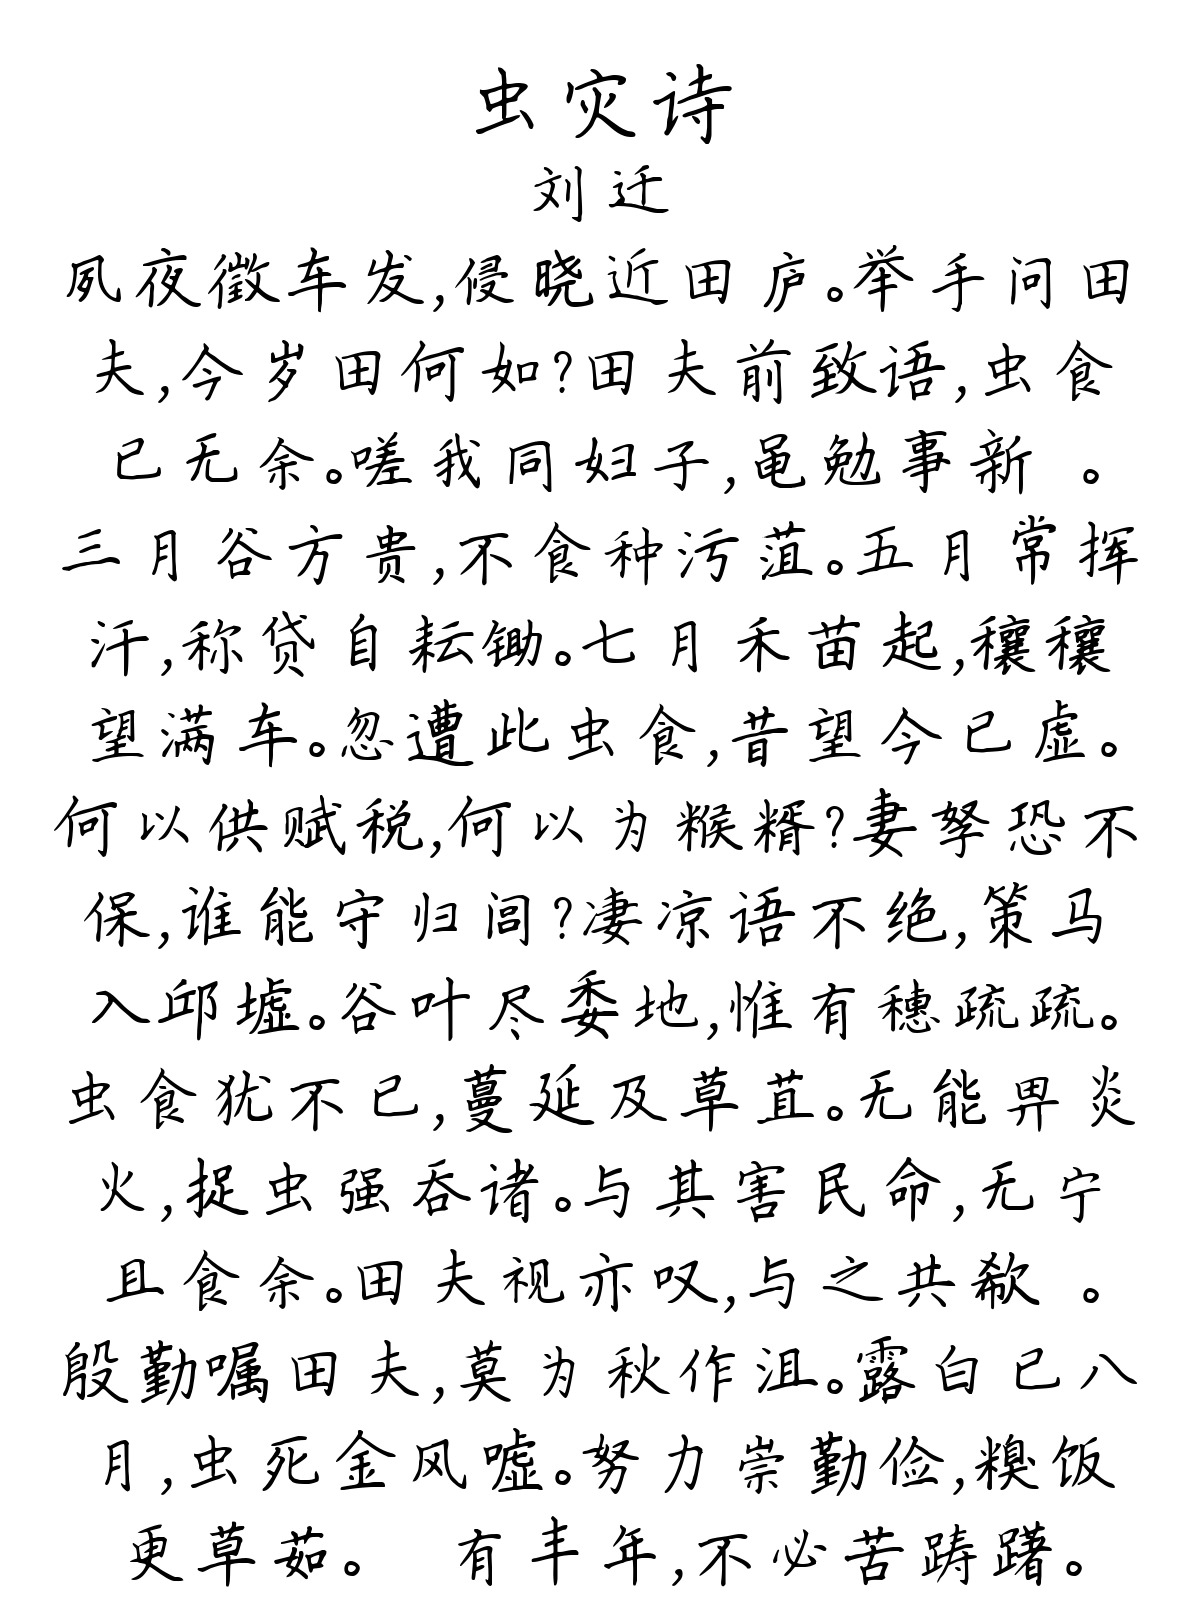 虫灾诗
刘迁
夙夜徵车发,侵晓近田庐。举手问田
夫,今岁田何如?田夫前致语,虫食
已无余。嗟我同妇子,黾勉事新 。
三月谷方贵,不食种污菹。五月常挥
汗,称贷自耘锄。七月禾苗起,穰穰
望满车。忽遭此虫食,昔望今已虚。
何以供赋税,何以为糇糈?妻孥恐不
保,谁能守归闾?凄凉语不绝,策马
入邱墟。谷叶尽委地,惟有穗疏疏。
虫食犹不已,蔓延及草苴。无能畀炎
火,捉虫强吞诸。与其害民命,无宁
且食余。田夫视亦叹,与之共欷 。
殷勤嘱田夫,莫为秋作沮。露白已八
月,虫死金风嘘。努力崇勤俭,糗饭
更草茹。 有丰年,不必苦踌躇。